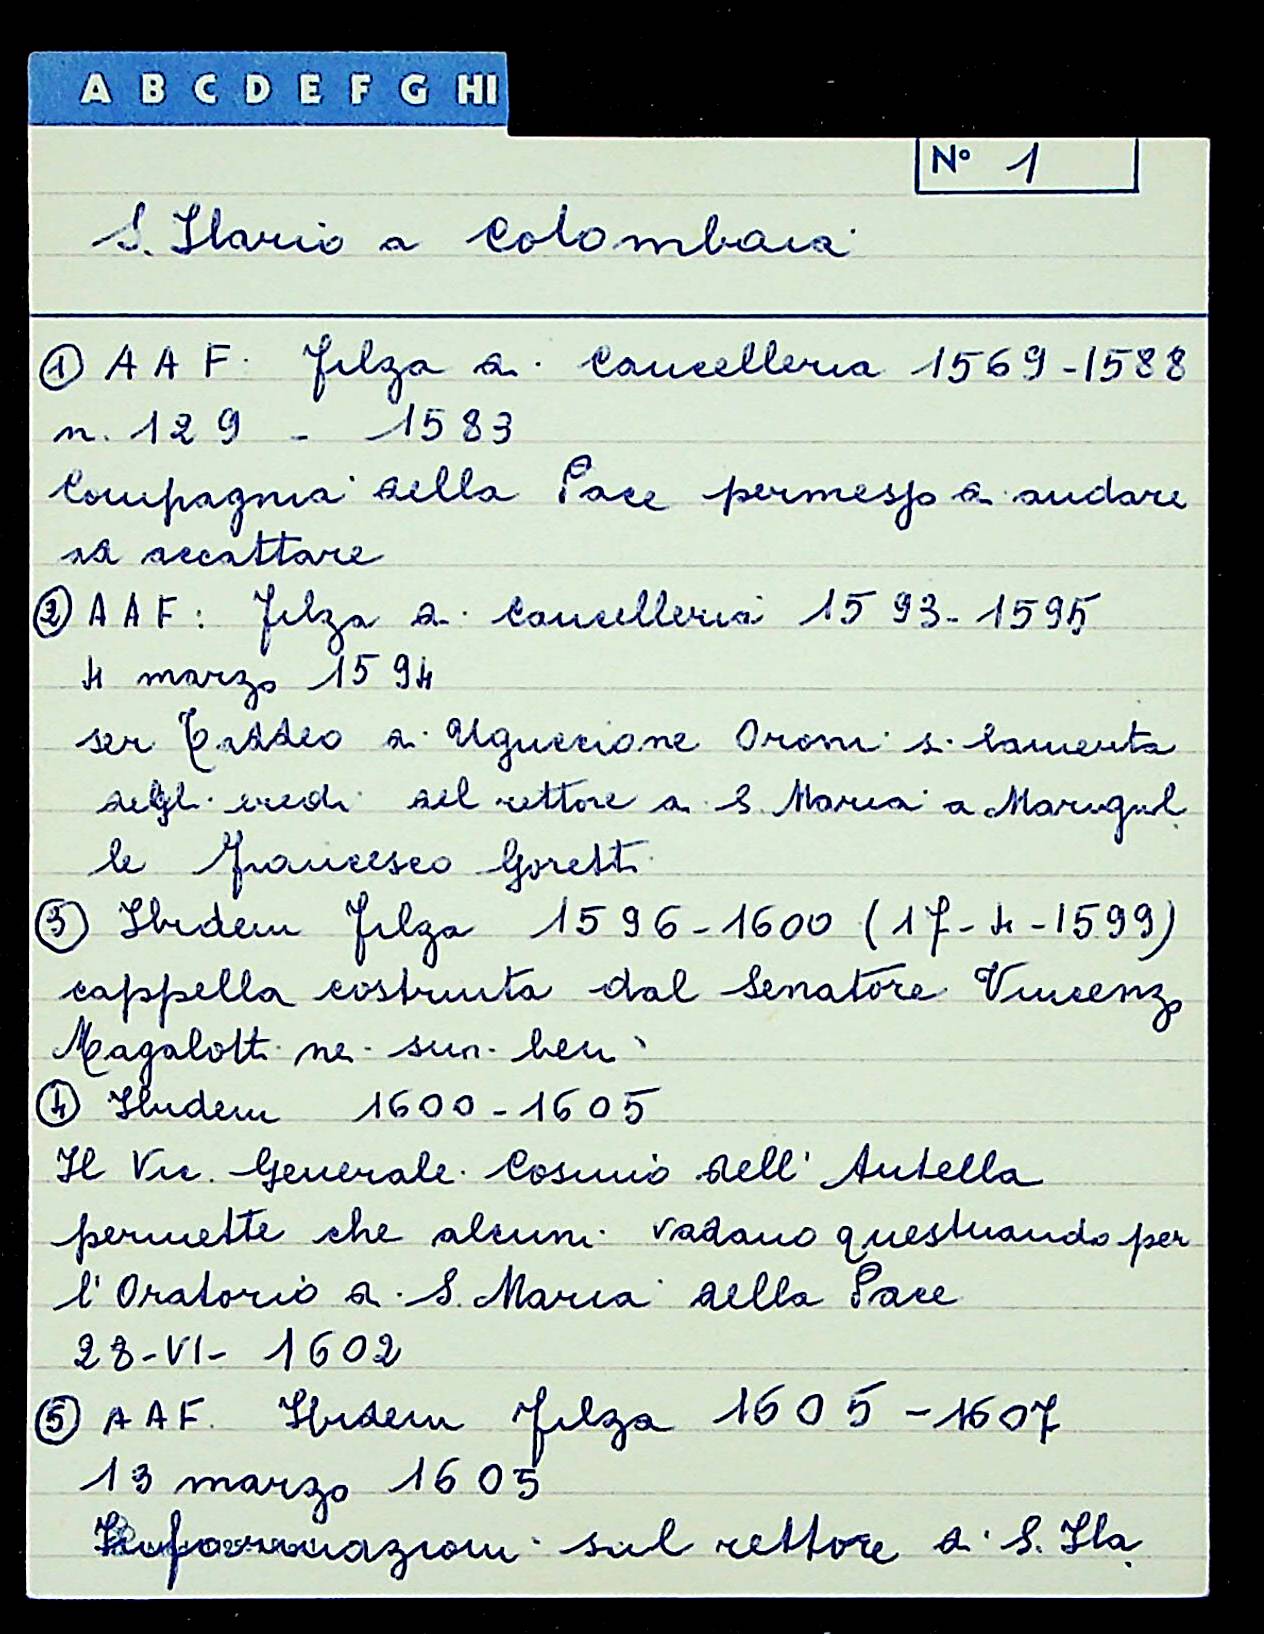 A B C D E F G HI
N° 1
S. Ilario a Colombaia
① A A F. Filza di Cancelleria 1569-1588
n. 129 - 1583
Compagnia della Pace permesso di andare
ad accattare
② A A F: Filza di Cancelleria 1593-1595
4 marzo 1594
ser Taddeo di Uguccione Oroni si lamenta
degli eredi del rettore di S. Maria a Marignol
le Francesco Goretti
③ Ibidem Filza 1596-1600 (17-4-1599)
cappella costruita dal Senatore Vincenzo
Magalotti nei suoi beni
④ Ibidem 1600-1605
Il Vic. Generale Cosimo dell'Antella
permette che alcuni vadano questuando per
l'Oratorio di S. Maria della Pace
28-VI- 1602
⑤ A A F. Ibidem Filza 1605-1607
13 marzo 1605
Informazioni sul rettore di S. Ila